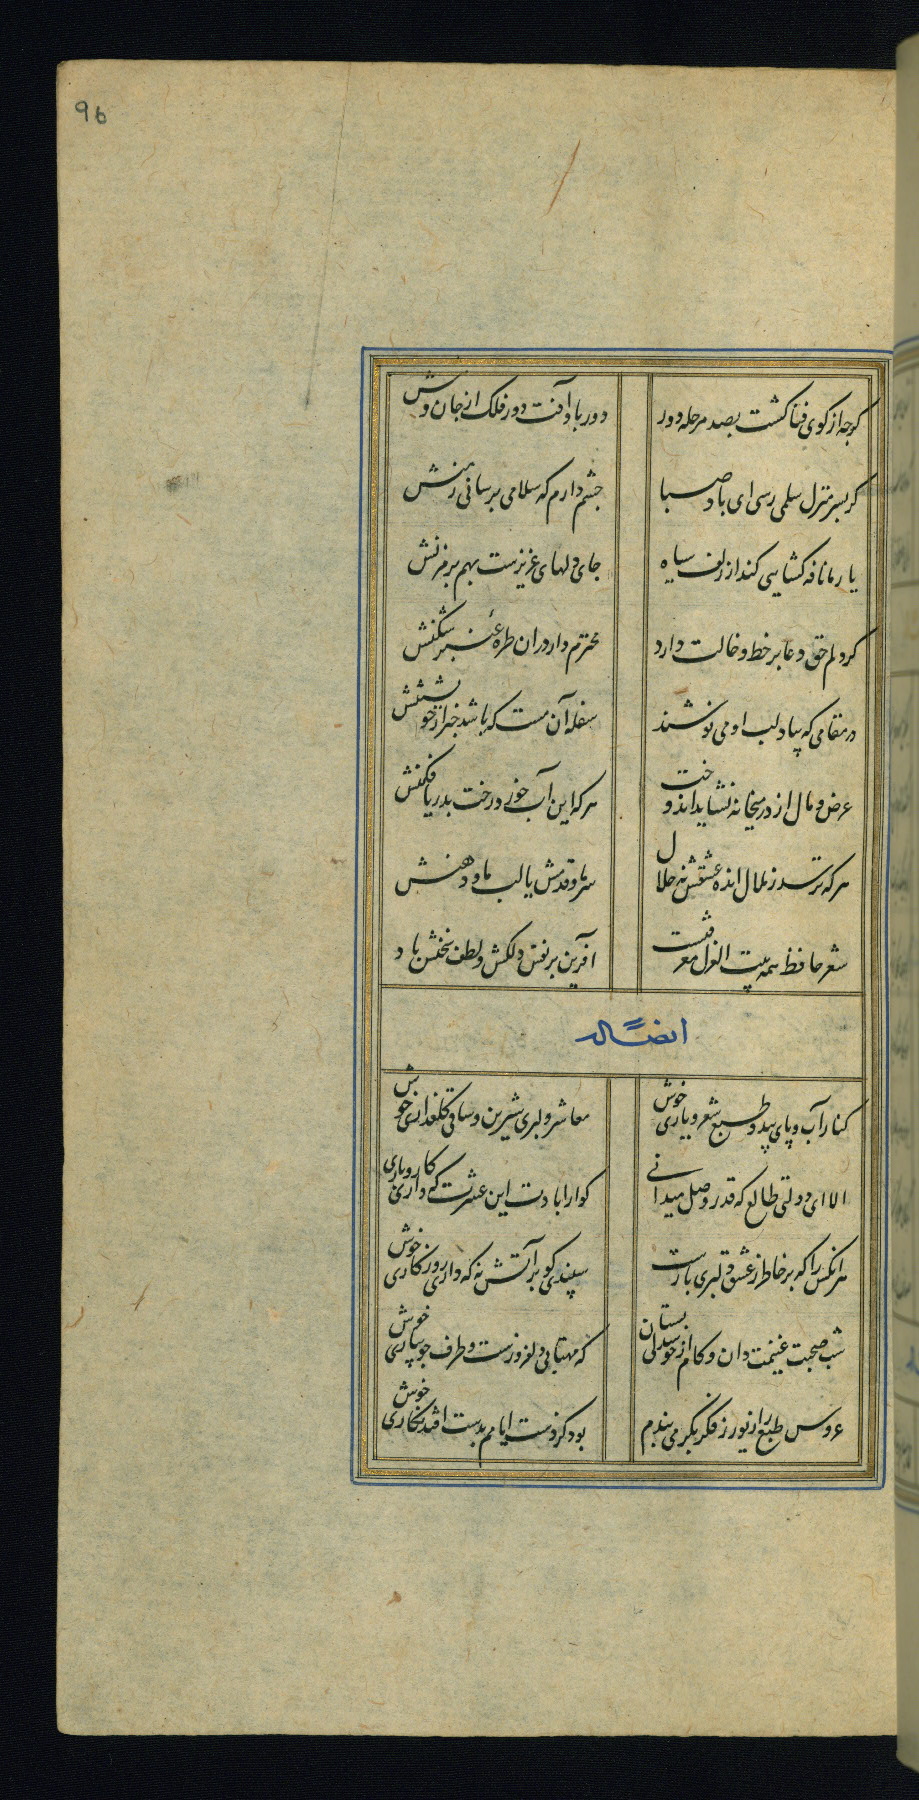 96
کرچه از کوی فنا کشت بصد مرحله دور
دور باد آفت دور فلک از جان و تنش
کر بسر منزل سلمی رسی ای باد صبا
چشم دارم که سلامی برسانی ز منش
یا رمانافه کشایی کند از زلف سیاه
جای دلهای عزیزست بهم بر مزنش
کر دلم حق دعا بر خط و خالت دارد
محترم دار دران طره عنبر شکنش
در مقامی که بیاد لب او می نوشند
سفله آن مست که باشد خبر از خویشتنش
عرض و مال از در میخانه نشاید اندوخت
هر که این آب خورد رخت بدریا فکنش
هر که ترسد ز ملال انده عشقش نه حلال
سر ما و قدمش یا لب ما و دهنش
شعر حافظ همه بیت الغزل معرفتست
آفرین بر نفس دلکش و لطف سخنش باد
ایضاً له
کنار آب و پای بید و طبع شعر و یاری خوش
معاشر دلبری شیرین و ساقی کلعذاری خوش
الا ای دولتی طالع که قدر وصل میدانی
کوارا بادت این عشرت که داری کاروباری
هر انکس را که بر خاطر ز عشق دلبری باریست
سپندی کو بر آتش نه که داری روزکاری خوش
شب صحبت غنیمت دان و کام از خوشدلی بستان
که مهتابی دلفروزست و طرف جویباری خوش
عروس طبع را زیور ز فکر بکر می بندم
بود کز دست ایامم بدست افتد نکاری خوش